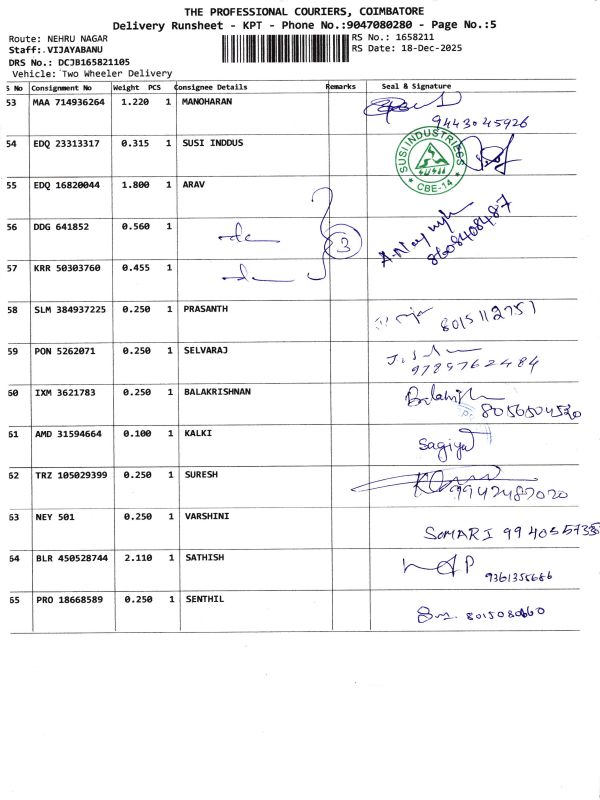 THE PROFESSIONAL COURIERS, COIMBATORE
Delivery Runsheet - KPT - Phone No.:9047080280 - Page No.:5
Route: NEHRU NAGAR
RS No.: 1658211
Staff: VIJAYABANU
RS Date: 18-Dec-2025
DRS No.: DCJB165821105
Vehicle: Two Wheeler Delivery
S No Consignment No Weight PCS Consignee Details Remarks Seal & Signature
53 MAA 714936264 1.220 1 MANOHARAN
9443045926
54 EDQ 23313317 0.315 1 SUSI INDDUS
SUSI INDUSTRIES
CBE-14
55 EDQ 16820044 1.800 1 ARAV
56 DDG 641852 0.560 1 3
8608408487
57 KRR 50303760 0.455 1
58 SLM 384937225 0.250 1 PRASANTH 8015112751
59 PON 5262071 0.250 1 SELVARAJ
9789762484
60 IXM 3621783 0.250 1 BALAKRISHNAN
8056504520
61 AMD 31594664 0.100 1 KALKI
Sagiya
62 TRZ 105029399 0.250 1 SURESH
9942487020
63 NEY 501 0.250 1 VARSHINI
SOMARI
64 BLR 450528744 2.110 1 SATHISH
9361355686
65 PRO 18668589 0.250 1 SENTHIL